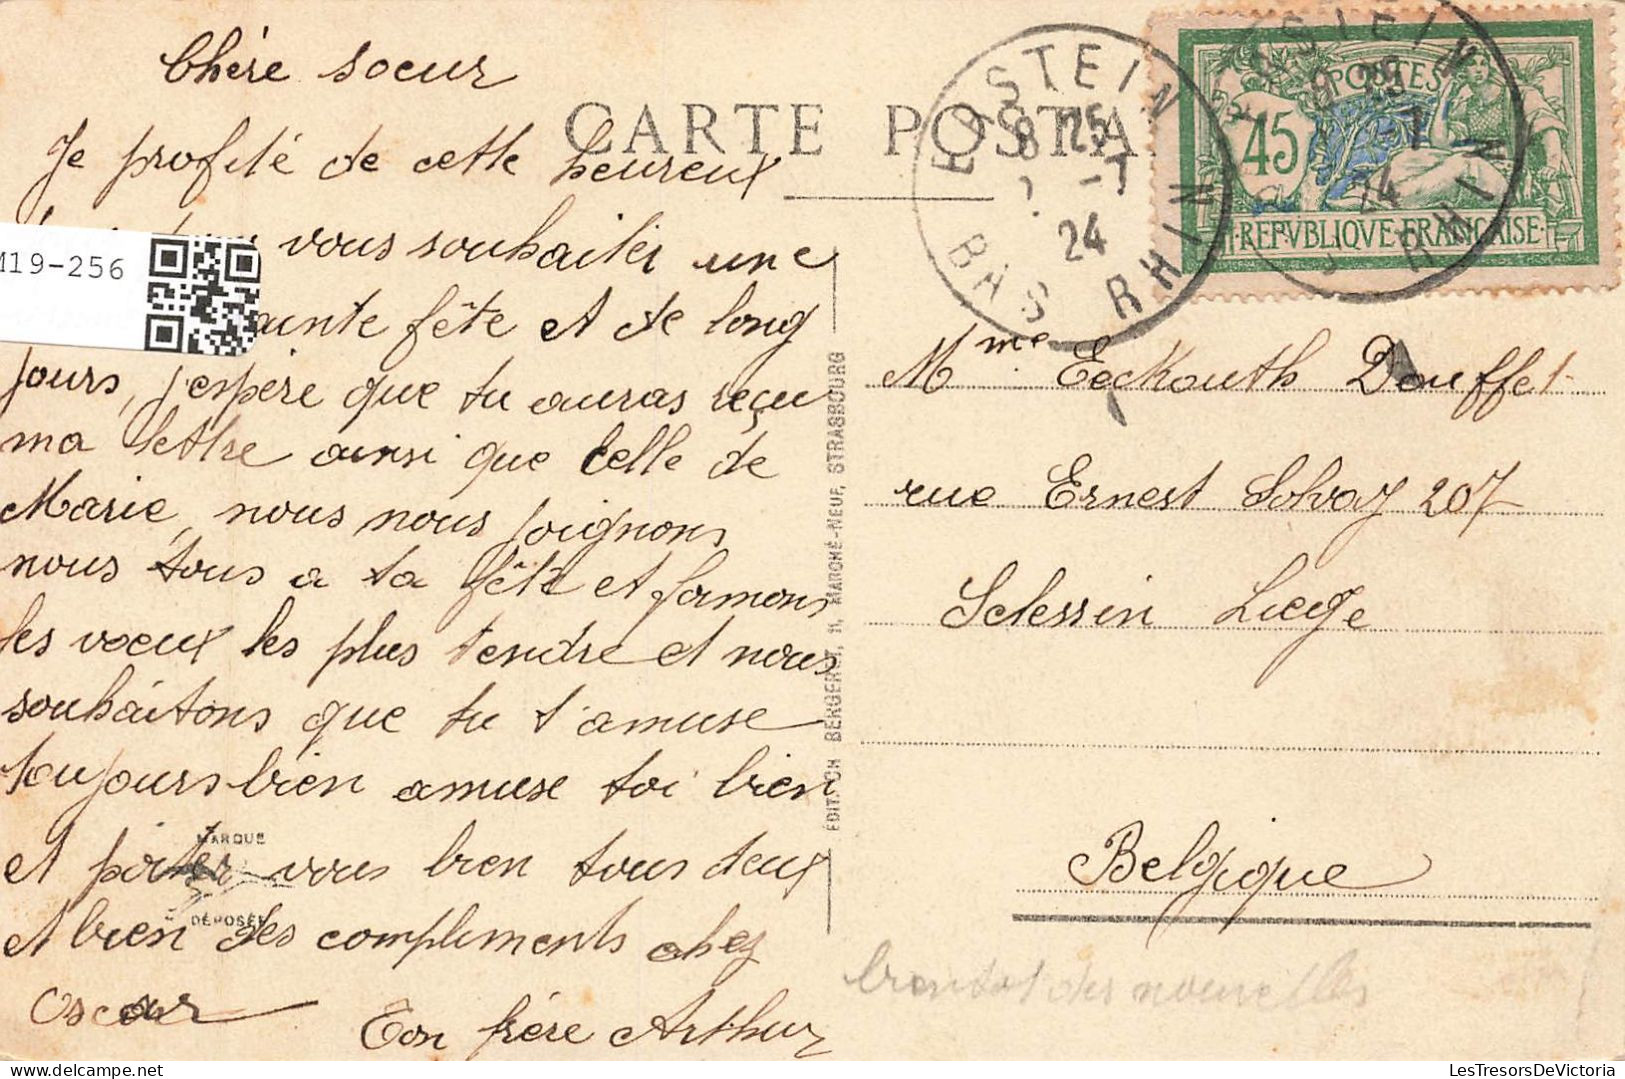 Chère soeur
Je profite de cette heureux
vous souhaiter une
fête et de long
jours, j'espère que tu auras reçu
ma lettre ainsi que celle de
Marie, nous nous joignons
nous tous a ta fête et formons
les voeux les plus tendre et nous
souhaitons que tu t'amuse
toujours bien amuse toi bien
et porter vous bien tous deux
et bien des compliments chez
Oscar
Ton frère Arthur
M19-256
MARQUE
DÉPOSÉE
CARTE POSTA
ÉDIT. CH BERGERET, 11, MARCHÉ-NEUF, STRASBOURG
BAS RHIN
8 25
-7
24
POSTES
45
REPVBLIQVE FRANÇAISE
Mme Eeckouth Douffet
rue Ernest Solvay 207
Sclessin Liege
Belgique
bientot des nouvelles
LesTresorsDeVictoria